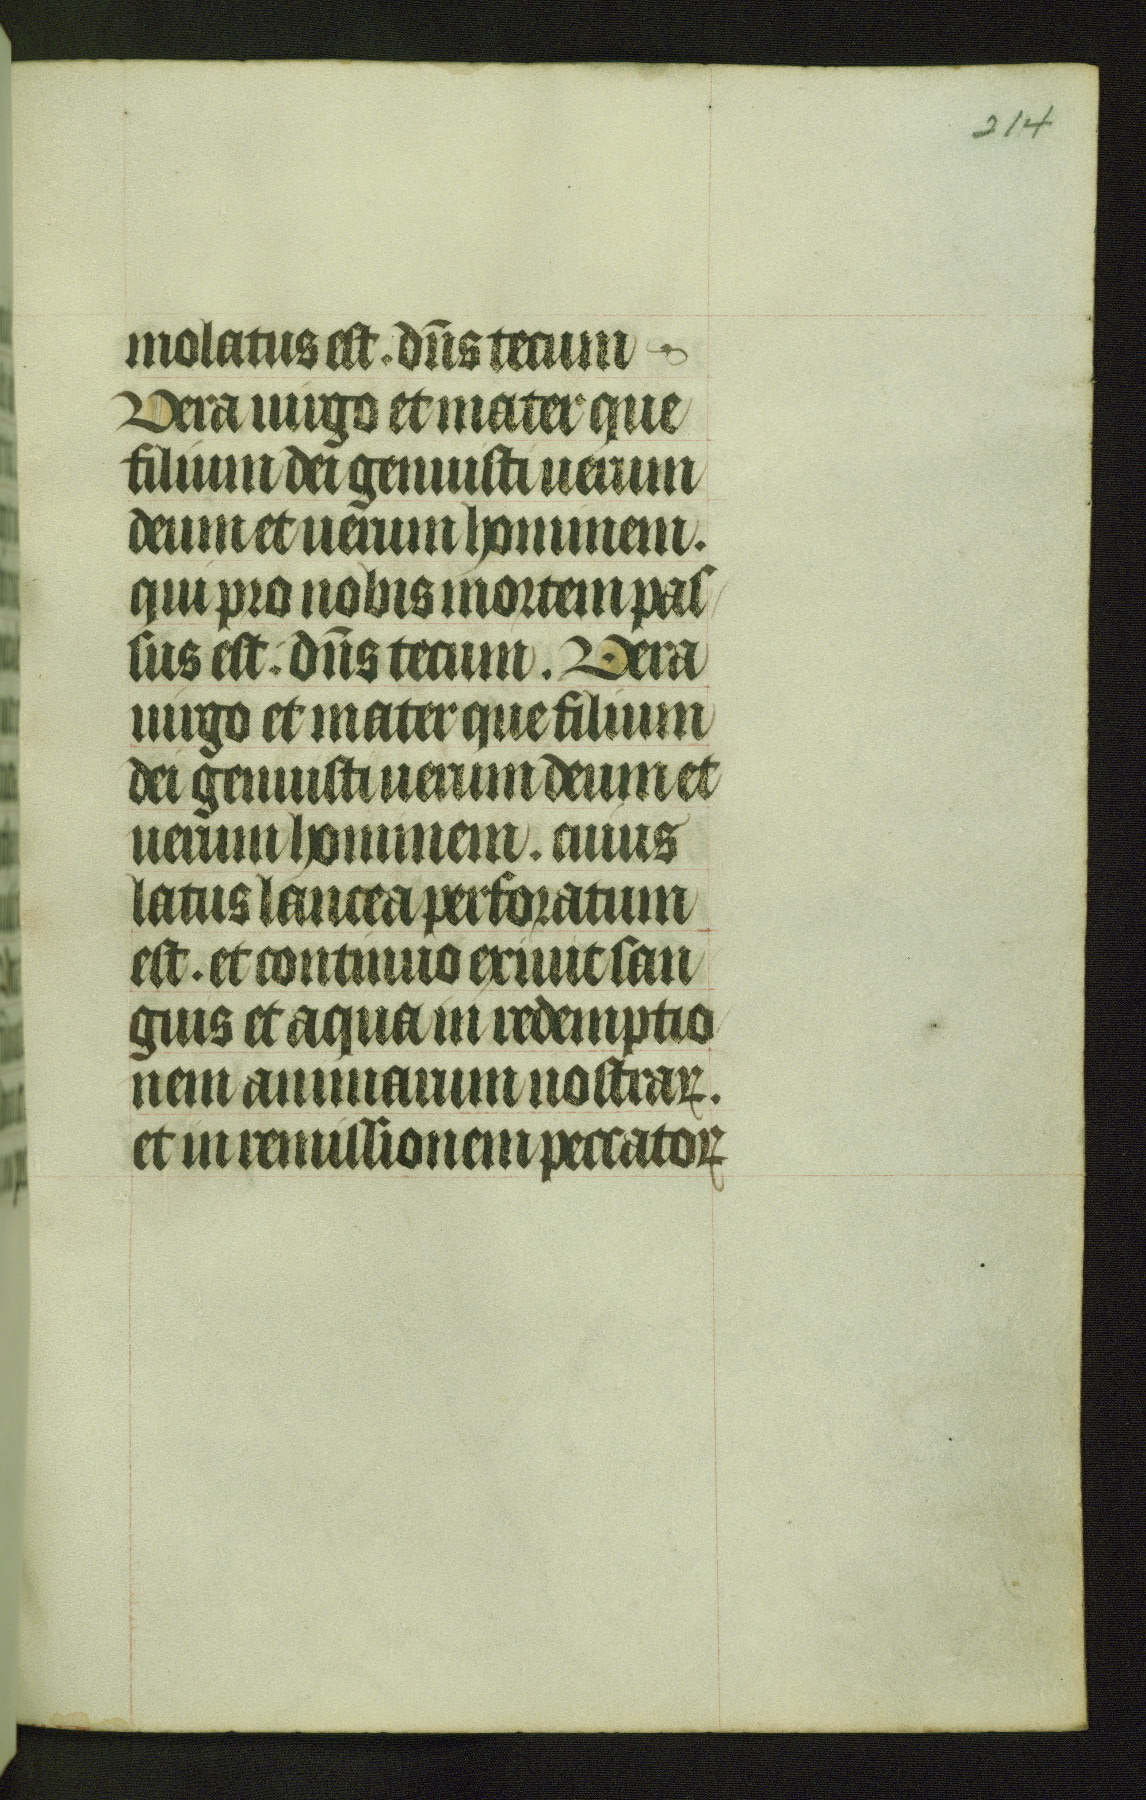 214
molatus est. dn̄s tecum
Vera uirgo et mater que
filium dei genuisti uerum
deum et uerum hominem.
qui pro nobis mortem pas
sus est. dn̄s tecum. Vera
uirgo et mater que filium
dei genuisti uerum deum et
uerum hominem. cuius
latus lancea perforatum
est. et continuo exiuit san
guis et aqua in redemptio
nem animarum nostraꝝ.
et in remissionem peccatoꝝ